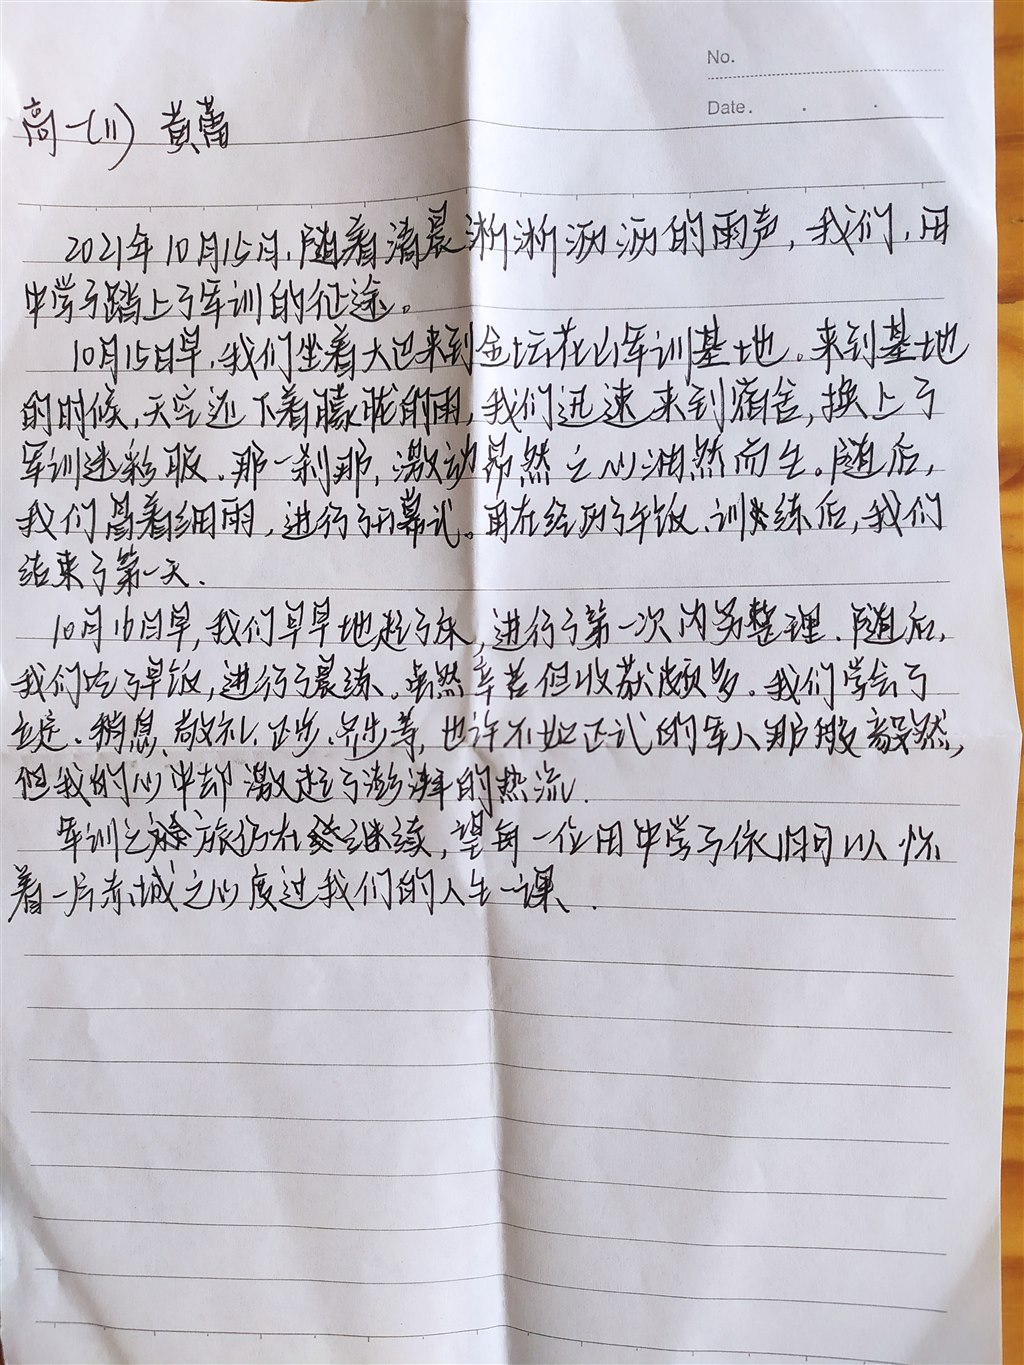 No.
Date.
高一(11) 黄蕾
2021年10月15日,随着清晨淅淅沥沥的雨声,我们,田
中学子踏上了军训的征途。
10月15日早,我们坐着大巴来到金坛花山军训基地。来到基地
的时候,天空还下着朦胧的雨,我们迅速来到宿舍,换上了
军训迷彩服。那一刹那,激动昂然之心油然而生。随后,
我们冒着细雨,进行了开幕式。再在经历了午饭、训练后,我们
结束了第一天.
10月16日早,我们早早地起了床,进行了第一次内务整理.随后,
我们吃了早饭,进行了晨练、虽然辛苦但收获颇多。我们学会了
立定、稍息、敬礼、正步、齐步等,也许不如正式的军人那般毅然,
但我的心中却激起了澎湃的热流.
军训之旅仍在继续,望每一位田中学子依旧可以怀
着一片赤城之心度过我们的人生一课、.